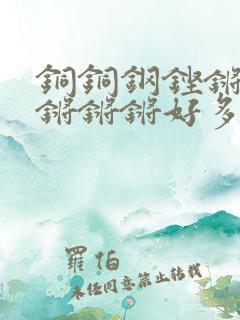 銅銅鋼鏗鏘
鏘鏘鏘好多
羅伯
未经同意禁止转载